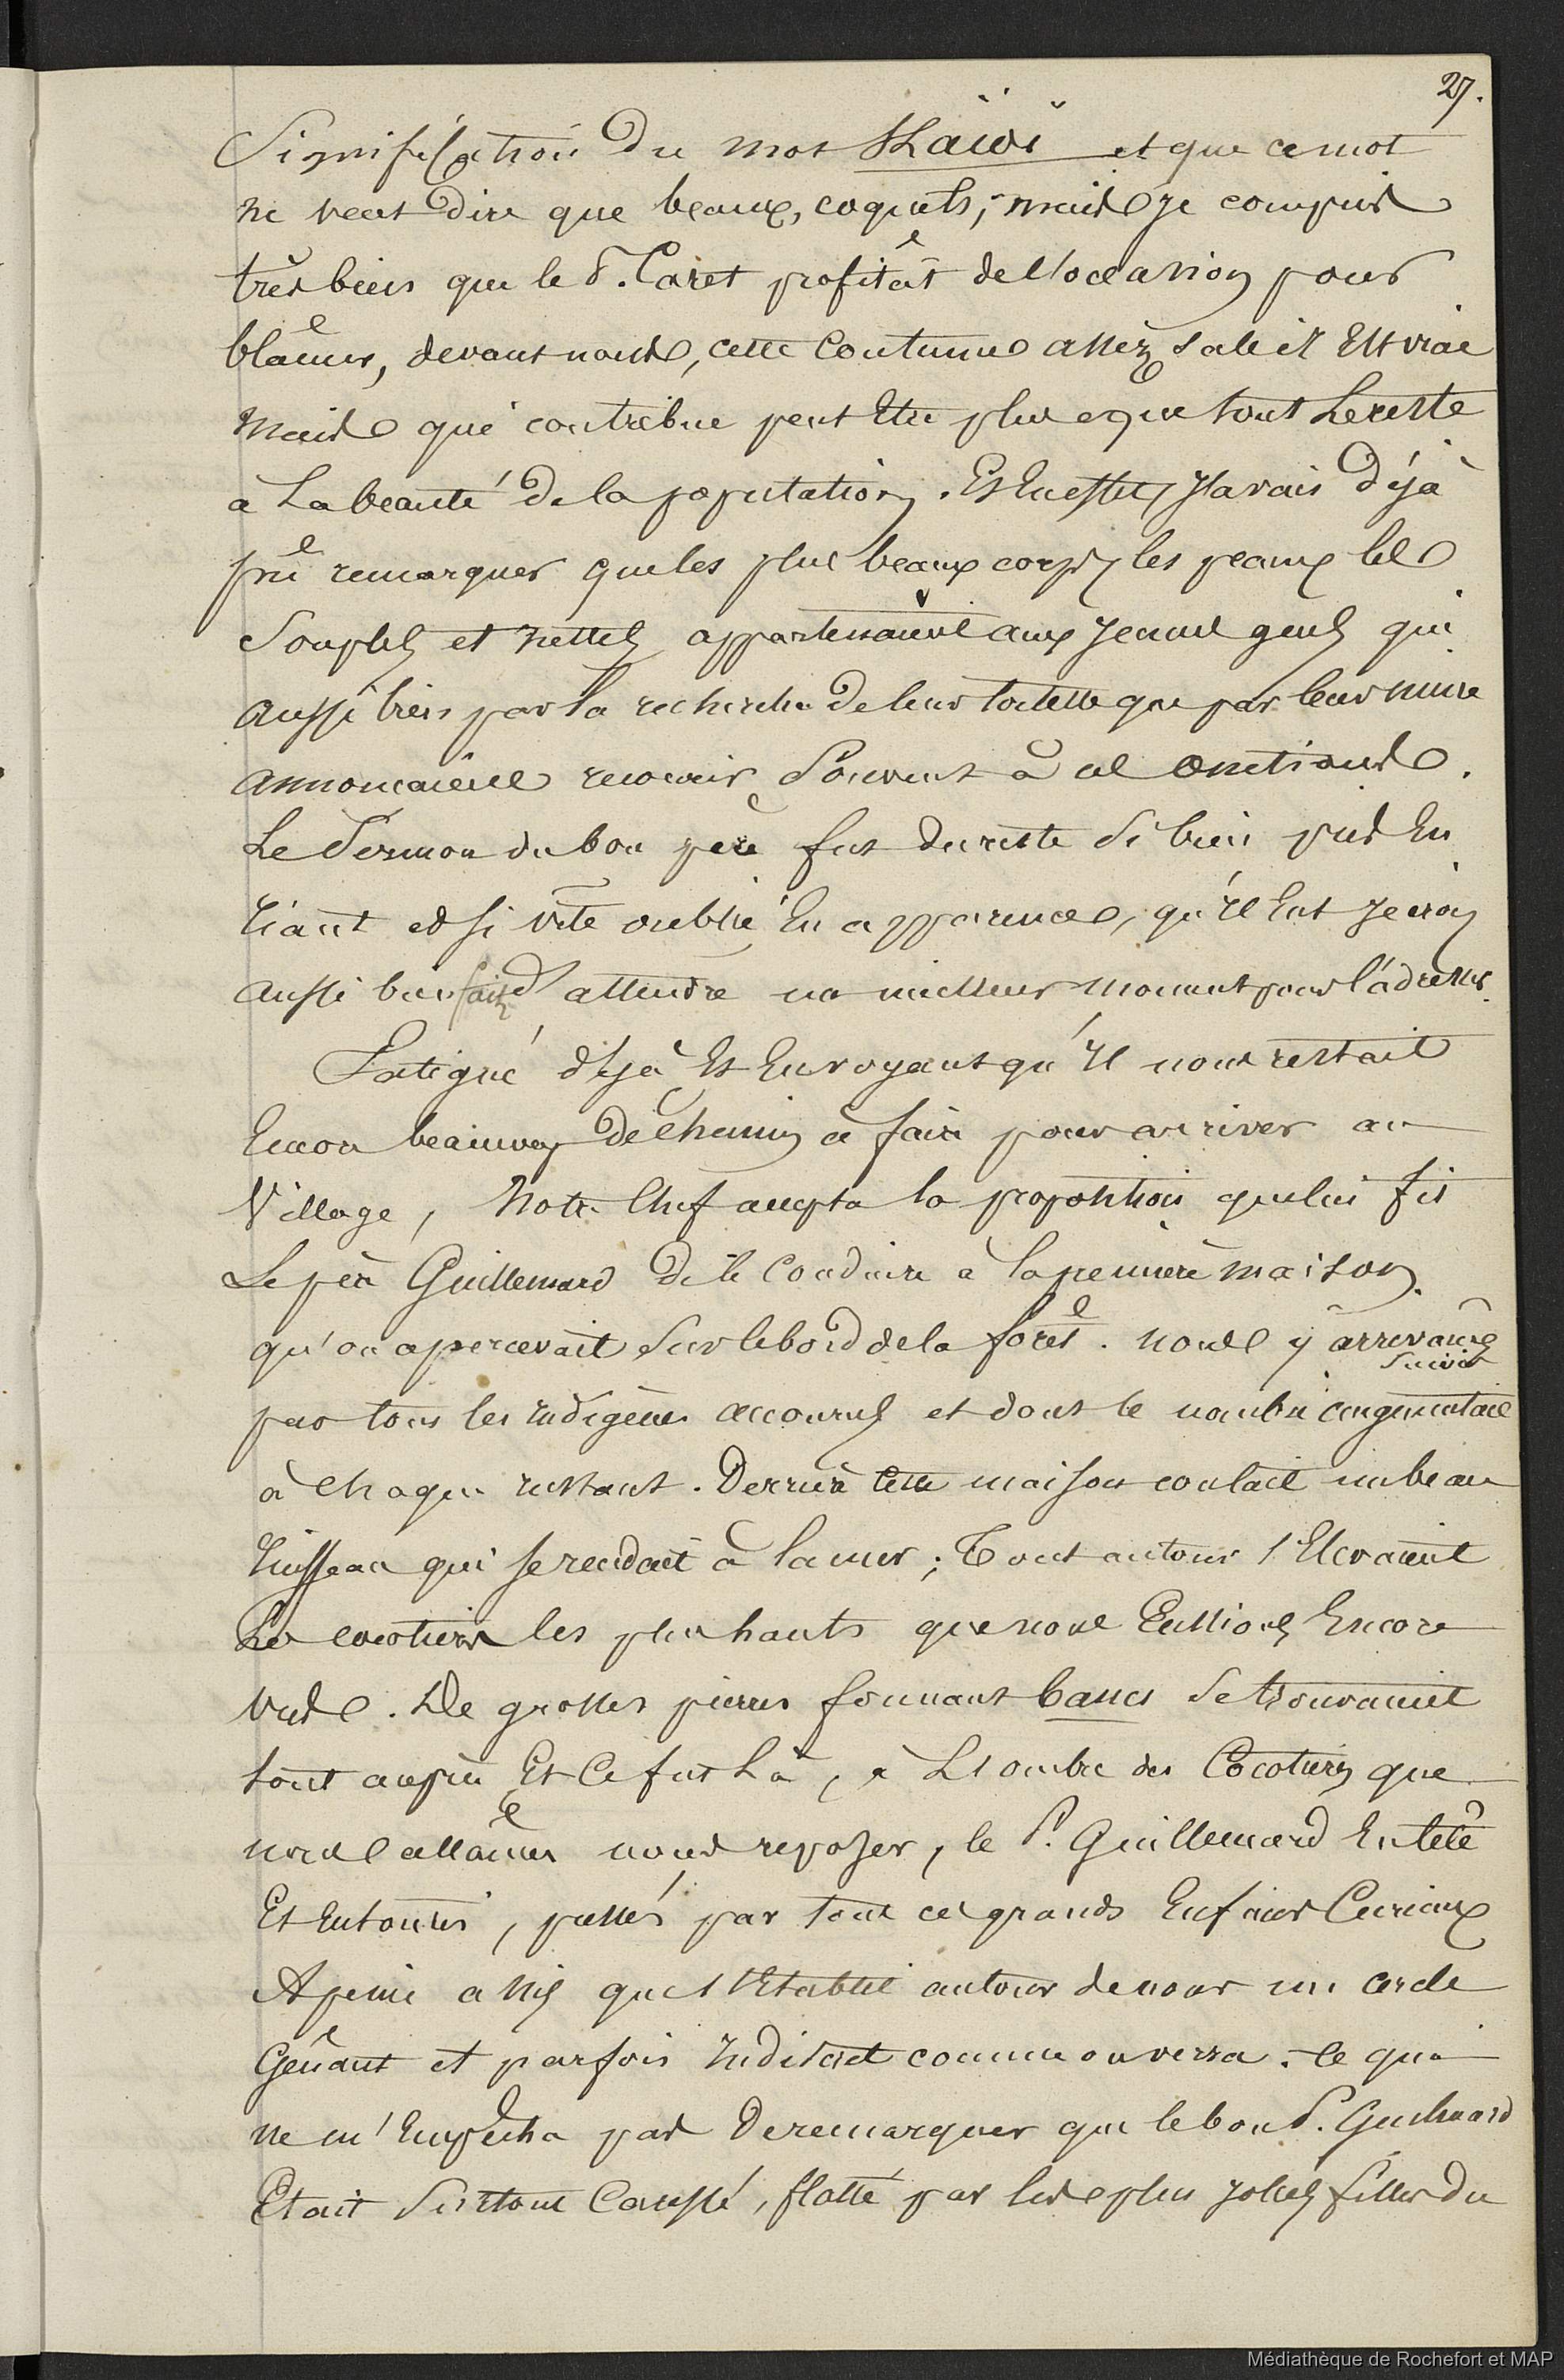 27.
Signification du mot Kaïoï et que ce mot
ne veut dire que beaux, coquets; mais je compris
très bien que le P. Caret profitât de l'occasion pour
blâmer, devant nous, cette coutume assez sale il est vrai
mais qui contribue peut être plus que tout le reste
à la beauté de la population. Et en effet, j'avais déjà
pû remarquer que les plus beaux corps, les peaux les
souples et nettes appartenaient aux jeunes gens qui
aussi bien par la recherche de leur toilette que par leur mine
annonçaient recourir souvent à ces onctions.
Le sermon du bon père fut du reste si bien pris en
riant et si vite oublié en apparence, qu'il eut je crois
aussi bien fait d'attendre un meilleur moment pour l'adresser.
Fatigué déjà et en voyant qu'il nous restait
encore beaucoup de chemin à faire pour arriver au
village, notre chef accepta la proposition que lui fit
le père Guillemard de le conduire à la première maison
qu'on apercevait sur le bord de la forêt. nous y arrivâmes
suivis
par tous les indigènes accourus et dont le nombre augmentait
à chaque instant. Derrière cette maison coulait un beau
ruisseau qui se rendait à la mer; Tout autour s'élevaient
les cocotiers les plus hauts que nous eussions encore
vus. De grosses pierres formant bancs se trouvaient
tout auprès et ce fut là, à l'ombre des cocotiers que
nous allâmes nous reposer, le P. Guillemard en tête
et entourés, pressés par tous ces grands enfants curieux
A peine assis que s'établit autour de nous un cercle
gênant et parfois indiscret comme on verra. ce qui
ne m'empêcha pas de remarquer que le bon P. Guillemard
était surtout caressé, flatté par les plus jolies filles du
Médiathèque de Rochefort et MAP